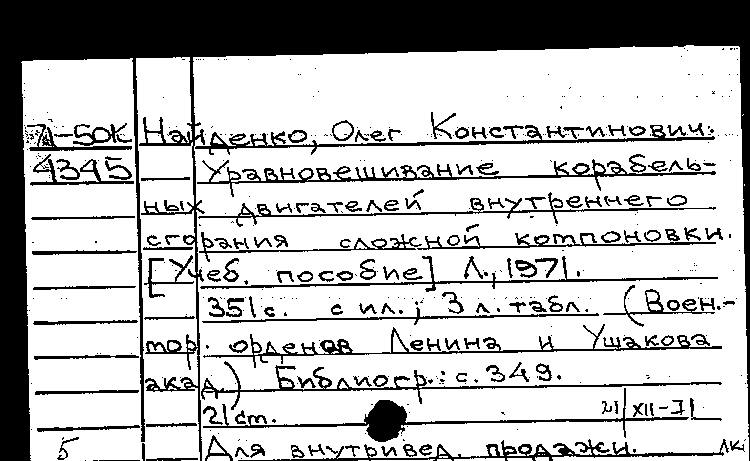 Л-50К Найденко, Олег Константинович.
4345 Уравновешивание корабель-
ных двигателей внутреннего
сгорания сложной компоновки.
[Учеб. пособие] Л., 1971.
351 с. с ил.; 3 л. табл. (Воен.-
мор. орденов Ленина и Ушакова
акад.) Библиогр.: с. 349.
21 cm. 21/XII-71
5 Для внутривед. продажи.